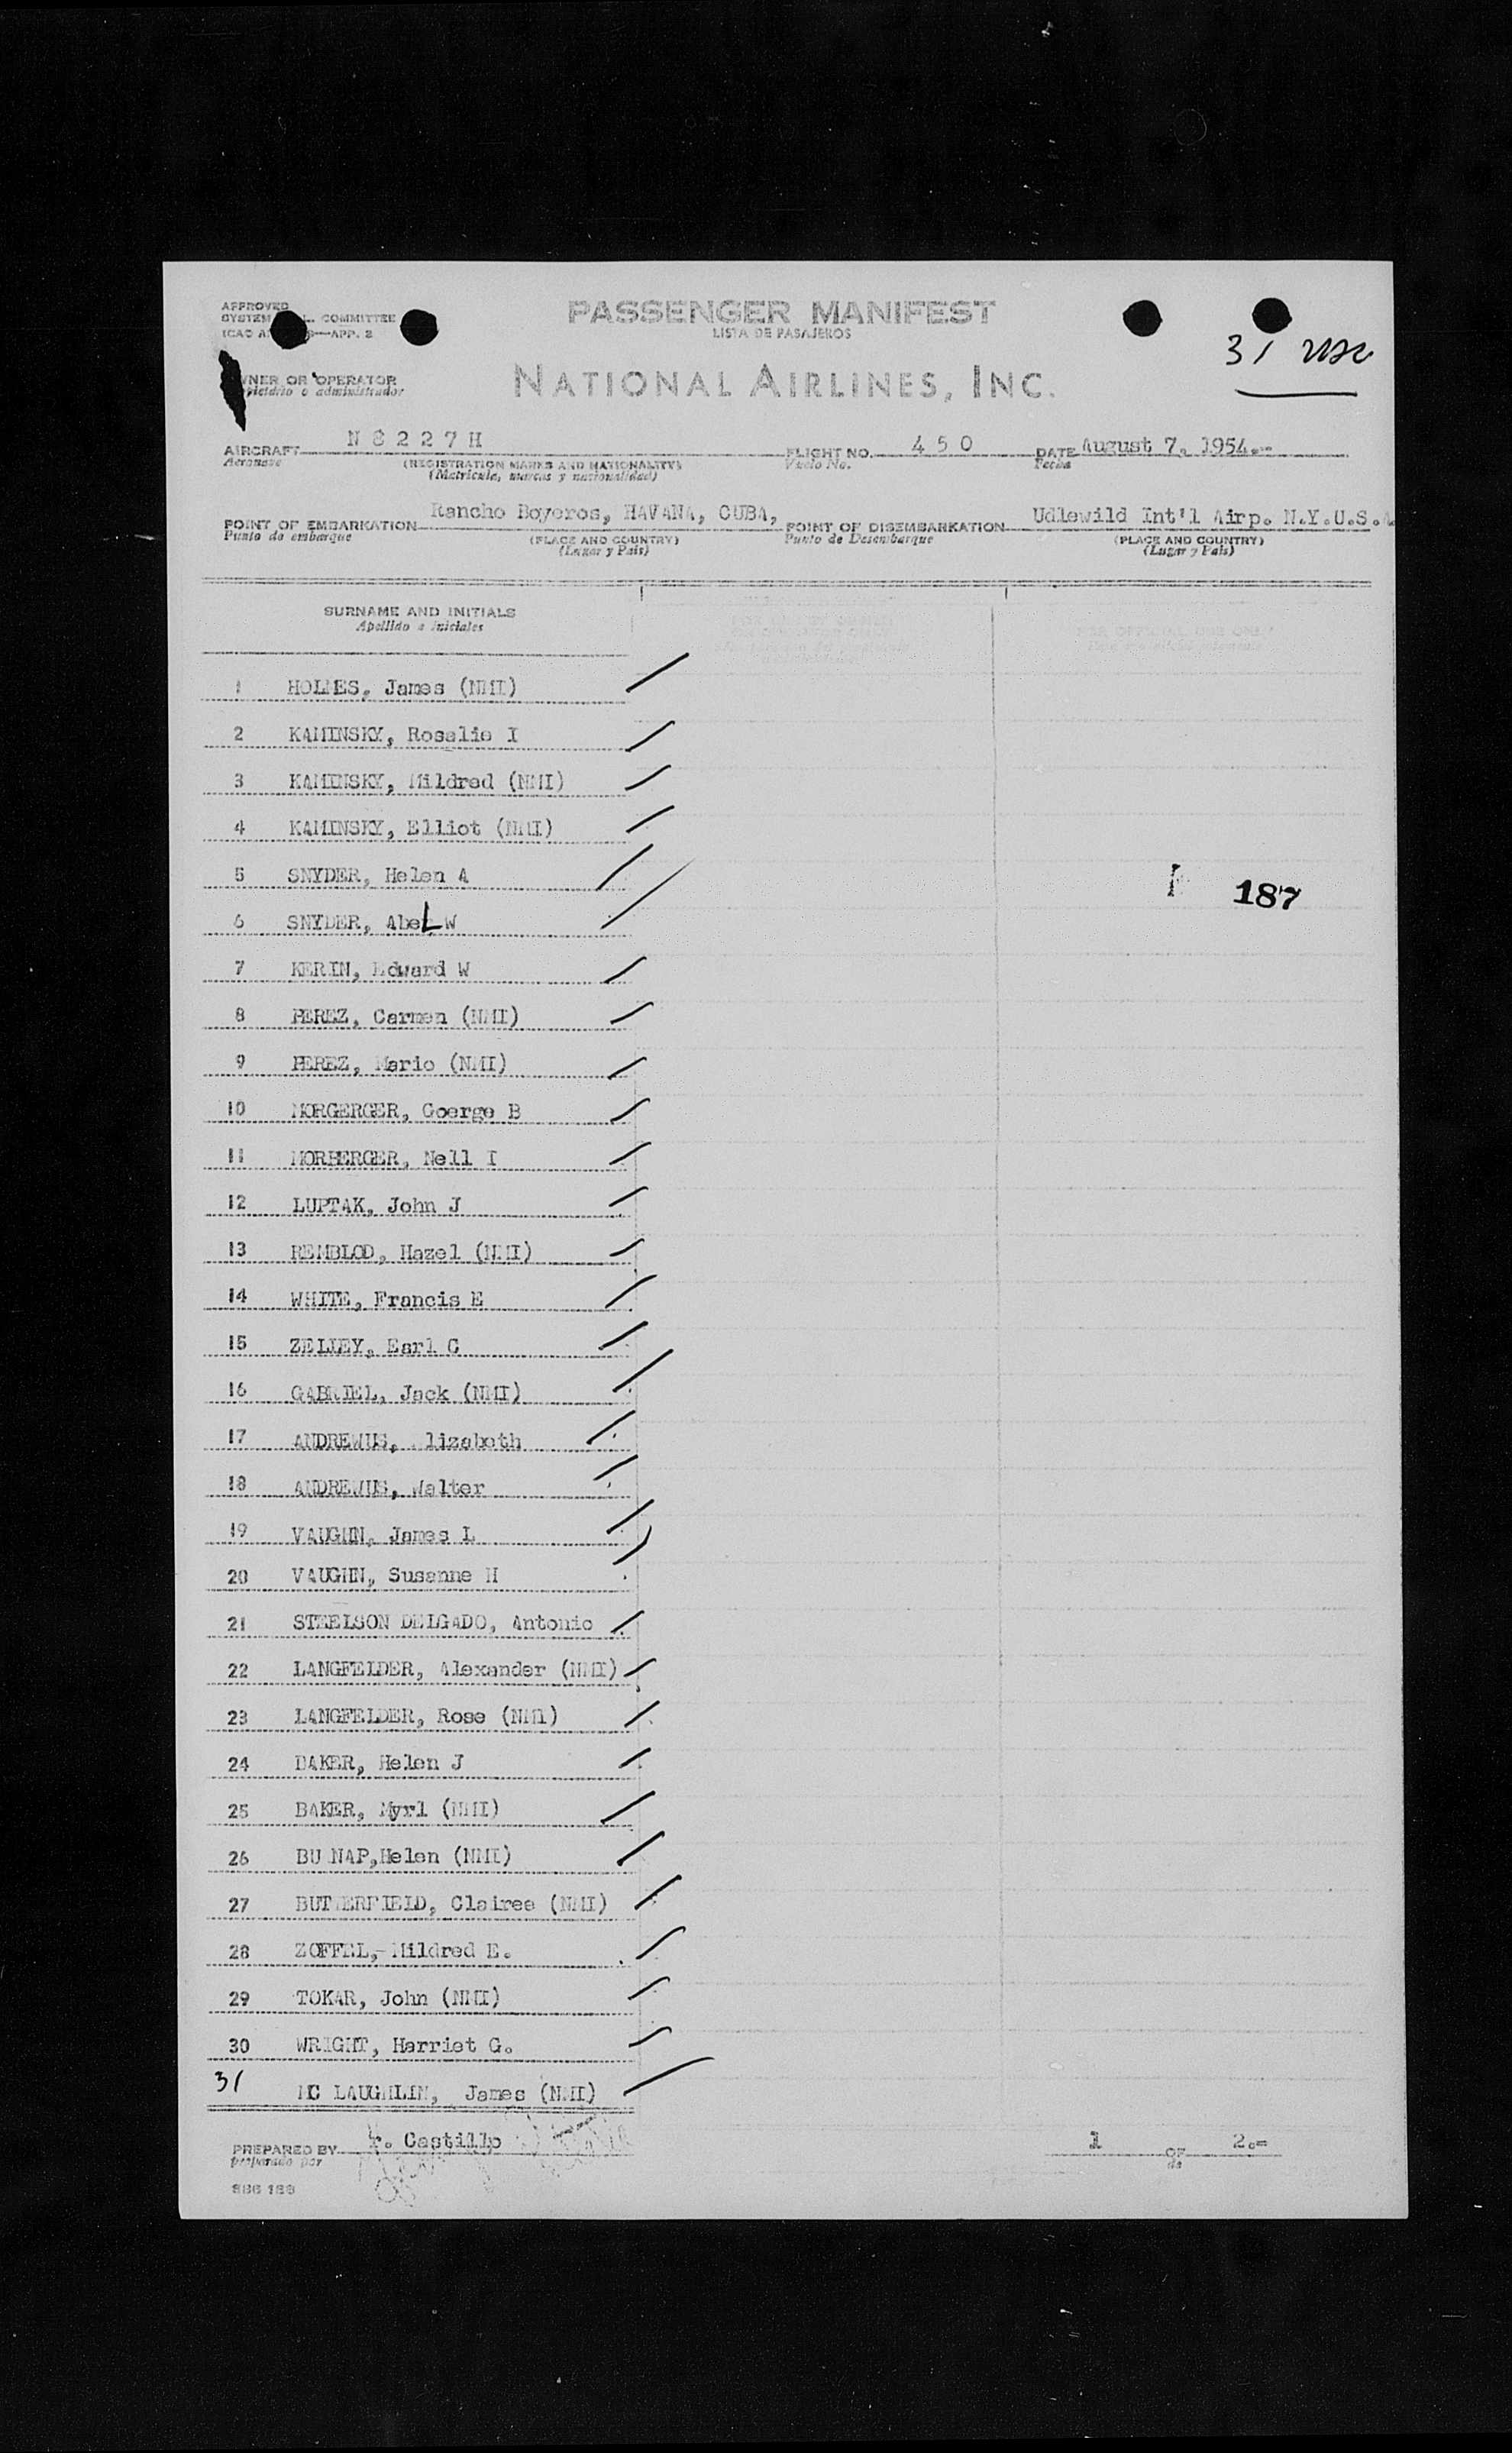 APPROVED
SYSTEM COMMITTEE
ICAO —APP. 2
PASSENGER MANIFEST
LISTA DE PASAJEROS
31 usc
OWNER OR OPERATOR
Propietario o administrador
NATIONAL AIRLINES, INC.
AIRCRAFT N 8 2 2 7 H FLIGHT NO. 4 5 0 DATE August 7, 1954.--
Aeronave (REGISTRATION MARKS AND NATIONALITY) Vuelo No. Fecha
(Matricula, marcas y nacionalidad)
POINT OF EMBARKATION Rancho Boyeros, HAVANA, CUBA, POINT OF DISEMBARKATION Udlewild Int'l Airp. N.Y.U.S.A
Punto de embarque (PLACE AND COUNTRY) Punto de Desembarque (PLACE AND COUNTRY)
(Lugar y Pais) (Lugar y Pais)
SURNAME AND INITIALS
Apellido e iniciales
FOR OFFICIAL USE ONLY
1 HOLMES, James (NMI)
2 KAMINSKY, Rosalie I
3 KAMINSKY, Mildred (NMI)
4 KAMINSKY, Elliot (NMI)
5 SNYDER, Helen A
187
6 SNYDER, AbeL W
7 KERIN, Edward W
8 PEREZ, Carmen (NMI)
9 PEREZ, Mario (NMI)
10 MORGERGER, Goerge B
11 MORBERGER, Nell I
12 LUPTAK, John J
13 REMBLOD, Hazel (NMI)
14 WHITE, Francis E
15 ZELLEY, Earl C
16 GABRIEL, Jack (NMI)
17 ANDREWUS, lizabeth
18 ANDREWUS, Walter
19 VAUGHN, James L
20 VAUGHN, Susanne H
21 STEELSON DELGADO, Antonio
22 LANGFELDER, Alexander (NMI)
23 LANGFELDER, Rose (NMI)
24 BAKER, Helen J
25 BAKER, Myrl (NMI)
26 BU NAP,Helen (NMI)
27 BUTTERFIELD, Clairee (NMI)
28 ZOFFEL,-Mildred E.
29 TOKAR, John (NMI)
30 WRIGHT, Harriet G.
31 MC LAUGHLIN, James (NMI)
PREPARED BY r. Castillo 1 OF 2.=
preparado por de